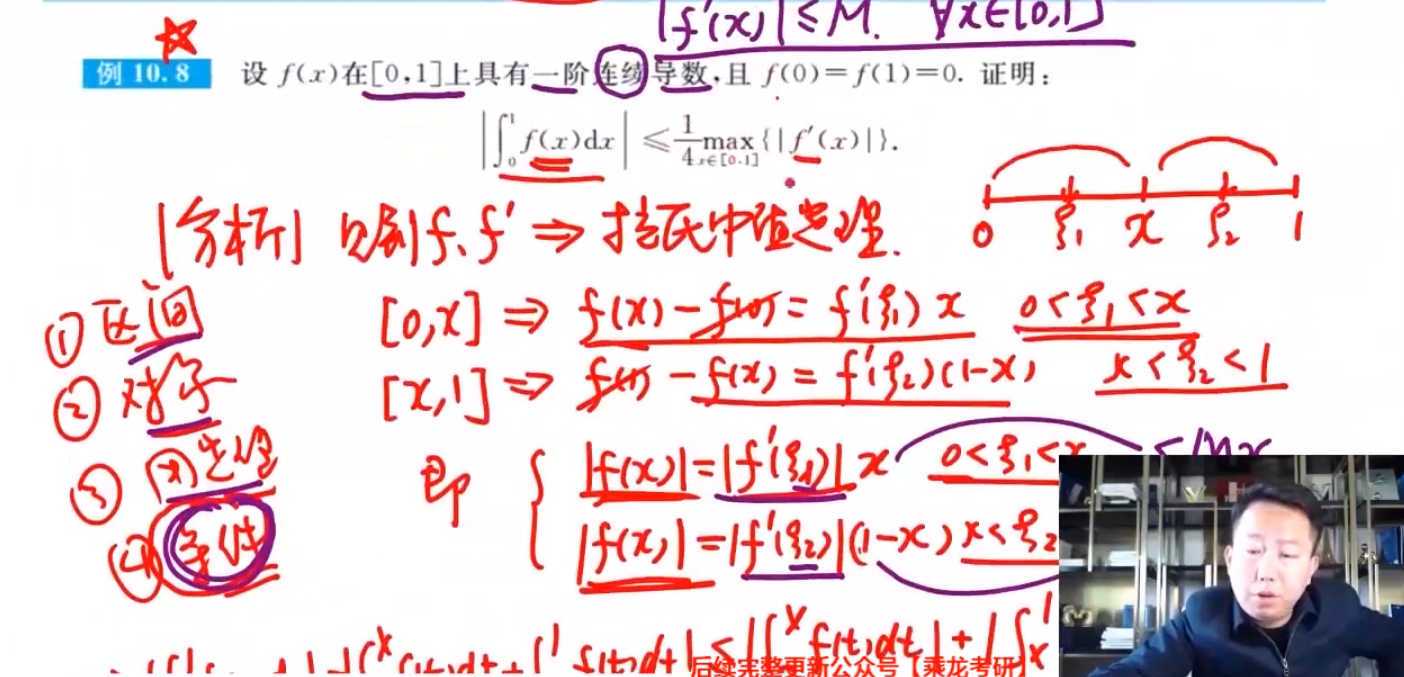 |f'(x)| ≤ M. ∀x∈[0,1]
例 10.8 设 f(x)在[0,1]上具有一阶连续导数,且 f(0)=f(1)=0. 证明:
|∫₀¹ f(x)dx| ≤ 1/4 max_{x∈[0,1]}{|f'(x)|}.
[分析] 见到f、f' ⇒ 拉氏中值定理.
0 ξ₁ x ξ₂ 1
① 区间
[0,x] ⇒ f(x) - f(0) = f'(ξ₁) x 0<ξ₁<x
② 对子
[x,1] ⇒ f(1) - f(x) = f'(ξ₂)(1-x) x<ξ₂<1
③
即 { |f(x)| = |f'(ξ₁)| x 0<ξ₁<x ≤ Mx
④ 条件
|f(x)| = |f'(ξ₂)|(1-x) x<ξ₂
f(t)dt| ≤ |∫ˣ f(t)dt| + |∫ₓ¹
后续完整更新公众号【乘龙考研】